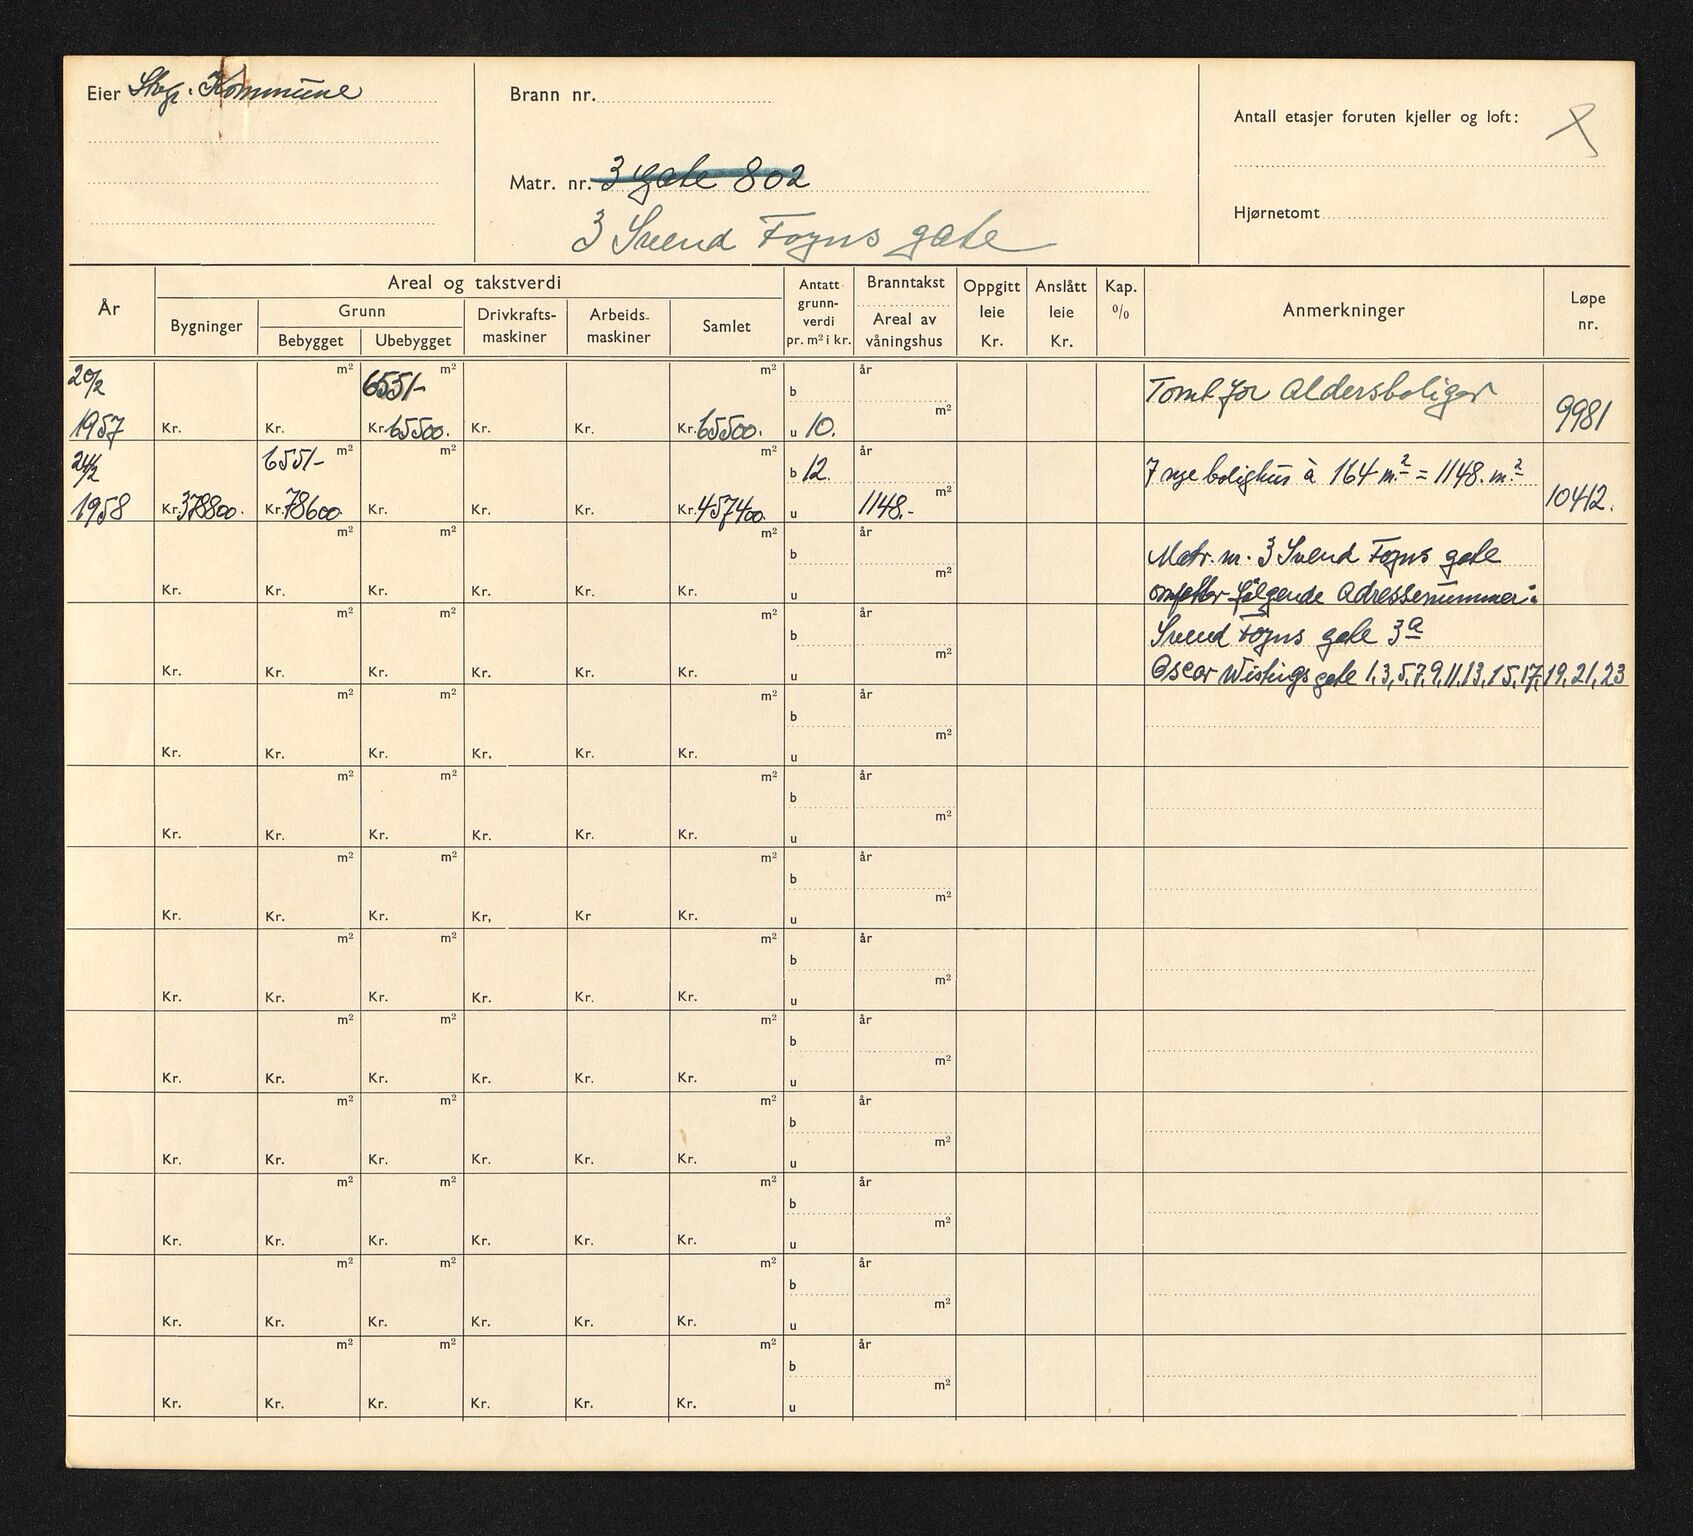 Eier Stvgr. Kommune
Brann nr.
Matr. nr. 3 gate 802
3 Svend Foyns gate
Antall etasjer foruten kjeller og loft:
Hjørnetomt
År
Areal og takstverdi
Bygninger
Grunn
Bebygget Ubebygget
Drivkrafts-
maskiner
Arbeids-
maskiner
Samlet
Antatt
grunn-
verdi
pr. m² i kr.
Branntakst
Areal av
våningshus
Oppgitt
leie
Kr.
Anslått
leie
Kr.
Kap.
%
Anmerkninger
Løpe
nr.
20/2 m² 6551- m² m² b år Tomt for Aldersboliger
1957 Kr. Kr. Kr. 65500. Kr. Kr. Kr. 65500. u 10. m² 9981
24/2 6551- m² m² m² b 12. år 7 nye bolighus à 164 m.² = 1148. m.²
1958 Kr. 378800. Kr. 78600. Kr. Kr. Kr. Kr. 457400. u 1148.- m² 10412.
m² m² m² b år Matr. nr. 3 Svend Foyns gate
Kr. Kr. Kr. Kr. Kr. Kr. u m² omfatter følgende Adressenummer:
m² m² m² b år Svend Foyns gate 3a
Kr. Kr. Kr. Kr. Kr. Kr. u m² Oscar Wistings gate 1, 3, 5, 7, 9, 11, 13, 15, 17, 19, 21, 23
m² m² m² b år
Kr. Kr. Kr. Kr. Kr. Kr. u m²
m² m² m² b år
Kr. Kr. Kr. Kr. Kr. Kr. u m²
m² m² m² b år
Kr. Kr. Kr. Kr. Kr Kr. u m²
m² m² m² b år
Kr. Kr. Kr. Kr. Kr. Kr. u m²
m² m² m² b år
Kr. Kr. Kr. Kr. Kr. Kr. u m²
m² m² m² b år
Kr. Kr. Kr. Kr. Kr. Kr. u m²
m² m² m² b år
Kr. Kr. Kr. Kr. Kr. Kr. u m²
m² m² m² b år
Kr. Kr. Kr. Kr. Kr. Kr. u m²
m² m² m² b år
Kr. Kr. Kr. Kr. Kr. Kr. u m²